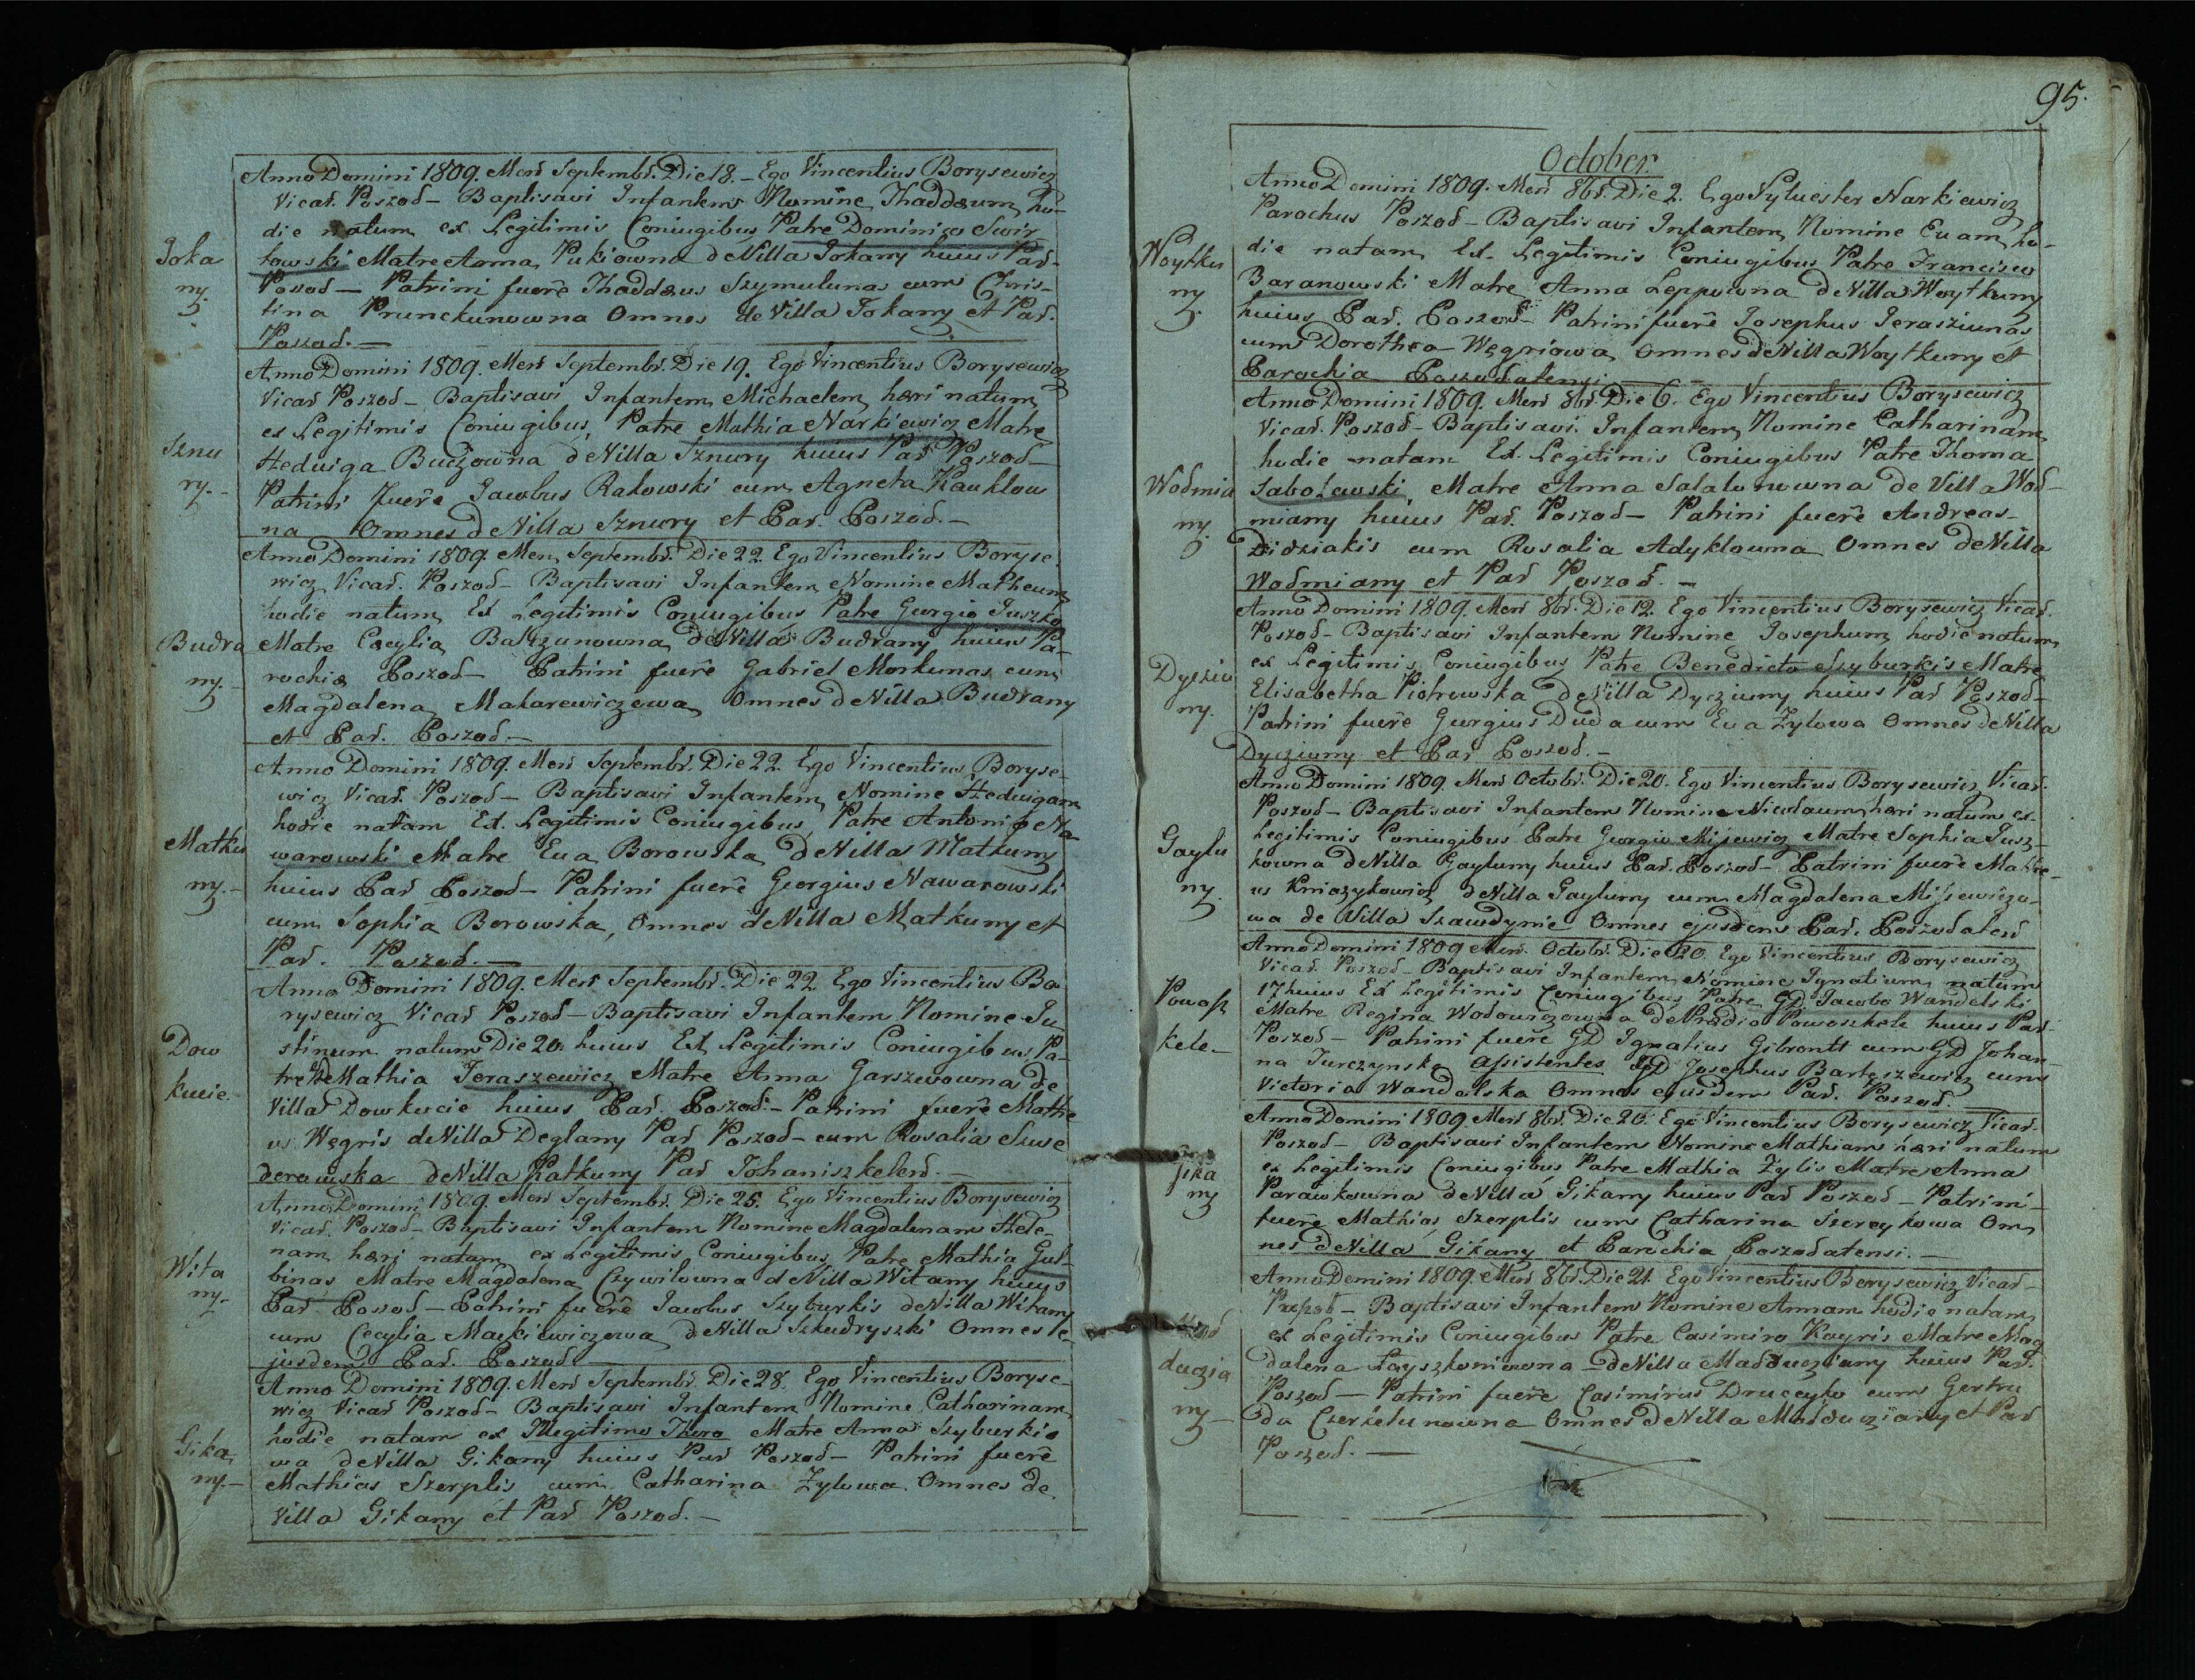 Joka
ny.
Anno Domini 1809. Mens Septembr. Die 18. – Ego Vincentius Borysewicz
Vicar. Poszod – Baptisavi Infantem Nomine Thaddæum ho-
die natum ex Legitimis Coniugibus Patre Dominico Swir
towski Matre Anna Pukiowna de Villa Jokany huius Par.
Poszod – Patrini fuere Thaddæus Szymulunas cum Chris-
tina Prunckunowna Omnes de Villa Jokany et Par.
Poszod. –
Sznu
ry. –
Anno Domini 1809. Mens Septembr. Die 19. Ego Vincentius Borysewicz
Vicar Poszod – Baptisavi Infantem Michaelem hæri natum
ex Legitimis Coniugibus Patre Mathia Narkiewicz Matre
Heduiga Buczowna de Villa Sznury huius Par Poszod –
Patrini fuere Jacobus Rakowski cum Agneta Kauklow
na Omnes de Villa Sznury et Par. Poszod. –
Budra
ny. –
Anno Domini 1809. Mens Septembr. Die 22. Ego Vincentius Boryse
wicz Vicar. Poszod – Baptisavi Infantem Nomine Matheum
hodie natum Ex Legitimis Coniugibus Patre Georgio Juszko
Matre Cæcylia Baltzunowna de Villa Budrany huius Pa-
rochia Poszod – Patrini fuere Gabriel Morkunas cum
Magdalena Makarewiczewa Omnes de Villa Budrany
et Par. Poszod. –
Matku
ny. –
Anno Domini 1809. Mens Septembr. Die 22. Ego Vincentius Boryse-
wicz Vicar. Poszod – Baptisavi Infantem Nomine Heduigam
hodie natam Ex. Legitimis Coniugibus Patre Antonio Na-
warowski Matre Eua Borowska de Villa Matkuny
huius Par Poszod – Patrini fuere Georgius Nawarowski
cum Sophia Borowska, Omnes de Villa Matkuny et
Par. Poszod. –
Dow
kucie.
Anno Domini 1809. Mens Septembr. Die 22. Ego Vincentius Bo
rysewicz Vicar Poszod – Baptisavi Infantem Nomine Ju
stinum natum Die 20. huius Ex Legitimis Coniugibus Pa-
tre Mathia Jeraszewicz Matre Anna Garszwowna de
Villa Dowkucie huius Par. Poszod. – Patrini fuere Mathe
us Węgris de Villa Deglany Par Poszod – cum Rosalia Szwe
derowska de Villa Ratkuny Par Johaniszkelens. –
Wita
ny. –
Anno Domini 1809. Mens Septembr. Die 25. Ego Vincentius Borysewicz
Vicar. Poszod – Baptisavi Infantem Nomine Magdalenam Hele-
nam hæri natam ex Legitimis Coniugibus Patre Mathia Gul-
binas Matre Magdalena Czywilowna de Villa Witany huius
Par Poszod – Patrini fuere Jacobus Szyburkis de Villa Witany
cum Cecylia Mackiewiczowa de Villa Szkudryszki Omnes e-
jusdem Par. Poszod. –
Gika
ny. –
Anno Domini 1809. Mens Septembr. Die 28. Ego Vincentius Boryse-
wicz Vicar Poszod – Baptisavi Infantem Nomine Catharinam
hodie natam ex Illegitimo Thoro Matre Anna Szyburkio
wa de Villa Gikany huius Par Poszod – Patrini fuere
Mathias Szerplis cum Catharina Zylowa. Omnes de
Villa Gikany et Par Poszod. –
95.
October.
Woytku
ny.
Anno Domini 1809. Mens 8br. Die 2. Ego Sylvester Narkiewicz
Parochus Poszod – Baptisavi Infantem Nomine Euam ho-
die natam Ex. Legitimis Coniugibus Patre Francisco
Baranowski Matre Anna Leppowna de Villa Woytkuny
huius Par. Poszod – Patrini fuere Josephus Jerasziunas
cum Dorothea Węgriowa Omnes de Villa Woytkuny et
Parochia Poszodatensi. –
Wodmia
ny.
Anno Domini 1809. Mens 8br. Die 6. Ego Vincentius Borysewicz
Vicar. Poszod – Baptisavi Infantem Nomine Catharinam
hodie natam Ex. Legitimis Coniugibus Patre Thoma
Sabolewski, Matre Anna Salatunowna de Villa Wod-
miany huius Par. Poszod – Patrini fuere Andreas
Didziakis cum Rosalia Adyklowna Omnes de Villa
Wodmiany et Par Poszod. –
Dycziu
ny.
Anno Domini 1809. Mens 8br. Die 12. Ego Vincentius Borysewicz Vicar.
Poszod – Baptisavi Infantem Nomine Josephum hodie natum
ex Legitimis Coniugibus Patre Benedicto Szyburkis Matre
Elisabetha Piotrowska de Villa Dycziuny huius Par Poszod –
Patrini fuere Georgius Duda cum Eua Zylowa Omnes de Villa
Dycziuny et Par Poszod. –
Gaylu
ny.
Anno Domini 1809. Mens Octobr. Die 20. Ego Vincentius Borysewicz Vicar.
Poszod – Baptisavi Infantem Nomine Nicolaum hæri natum ex
Legitimis Coniugibus Patre Georgio Mijewicz Matre Sophia Jusz-
kowna de Villa Gayluny huius Par. Poszod – Patrini fuere Mathe-
us Kniazykowicz de Villa Gayluny cum Magdalena Mijewiczo-
wa de Villa Szawdynie Omnes ejusdem Par. Poszodatens
Powosz
kele. –
Anno Domini 1809 Mens. Octobr. Die 20. Ego Vincentius Borysewicz
Vicar. Poszod – Baptisavi Infantem Nomine Ignatium natum
17 huius Ex Legitimis Coniugibus Patre GD. Jacobo Wandelski
Matre Regina Wodowiczowna de Prædio Powoszkele huius Par.
Poszod – Patrini fuere GD Ignatius Gibrontt cum GD Johan-
na Jurczynska Assistentes GD Josephus Bartoszewicz cum
Victoria Wandelska Omnes ejusdem Par. Poszod.
Gika
ny
Anno Domini 1809 Mens 8br. Die 20. Ego Vincentius Borysewicz Vicar.
Poszod – Baptisavi Infantem Nomine Mathiam hæri natum
ex Legitimis Coniugibus Patre Mathia Zylis Matre Anna
Parawkowna de Villa Gikany huius Par Poszod – Patrini
fuere Mathias Szerplis cum Catharina Szereykowa Om
nes de Villa Gikany et Parochia Poszodatensi. –
Mad
duczia
ny –
Anno Domini 1809. Mens 8br. Die 21. Ego Vincentius Borysewicz Vicar –
Poszod – Baptisavi Infantem Nomine Annam hodie natam
ex Legitimis Coniugibus Patre Casimiro Kayris Matre Mag
dalena Layszkoniowna – de Villa Madducziany huius Par.
Poszod – Patrini fuere Casimirus Druceyko cum Gertru
da Czerkelunowna Omnes de Villa Madducziany et Par
Poszod. –